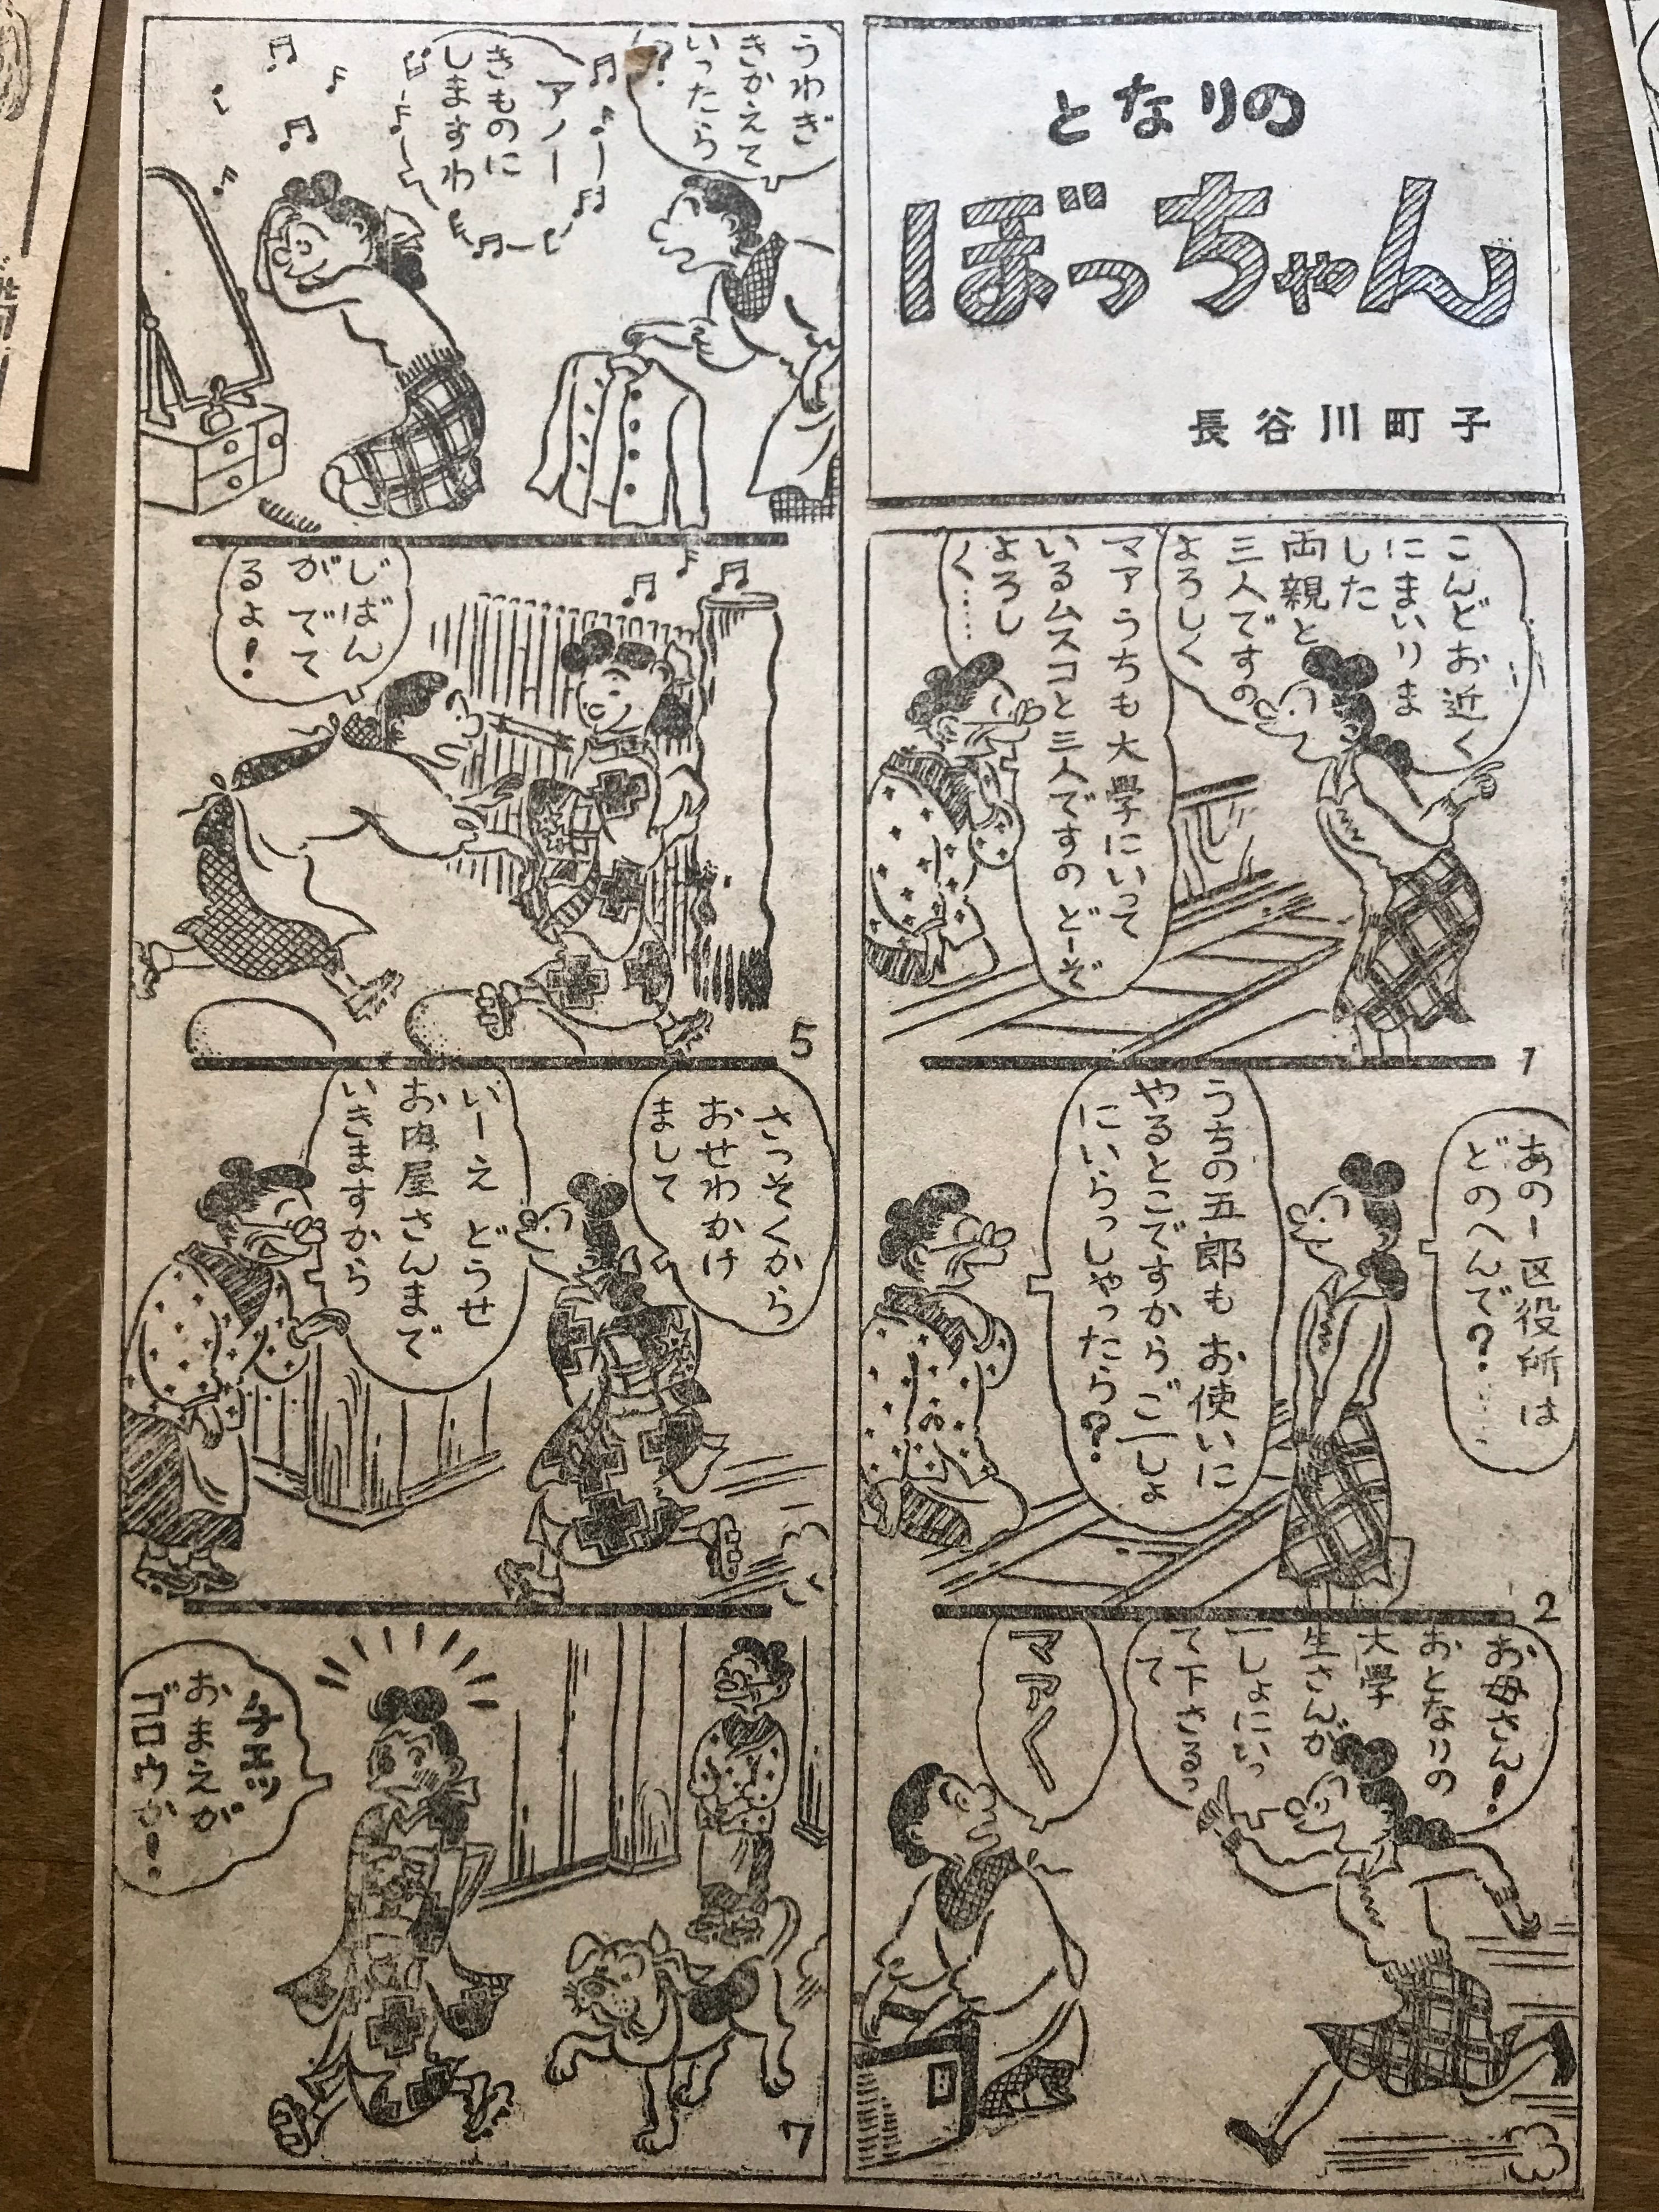 となりの
ぼっちゃん
長谷川町子
こんどお近く
にまいりま
した
両親と
三人ですの
よろしく
マアうちも大學にいって
いるムスコと三人ですの どーぞ
よろし
く……
1
あのー区役所は
どのへんで?……
うちの五郎もお使いに
やるとこですからご一しょ
にいらっしゃったら?
2
お母さん!
おとなりの
大學
生さんが
一しょにいっ
て下さるっ
て
マアく
うわぎ
きかえて
いったら
?
アノー
きものに
しますわ
じばん
がでて
るよ!
5
さっそくから
おせわかけ
まして
いーえ どうせ
お肉屋さんまで
いきますから
チエッ
おまえが
ゴロウか!
7